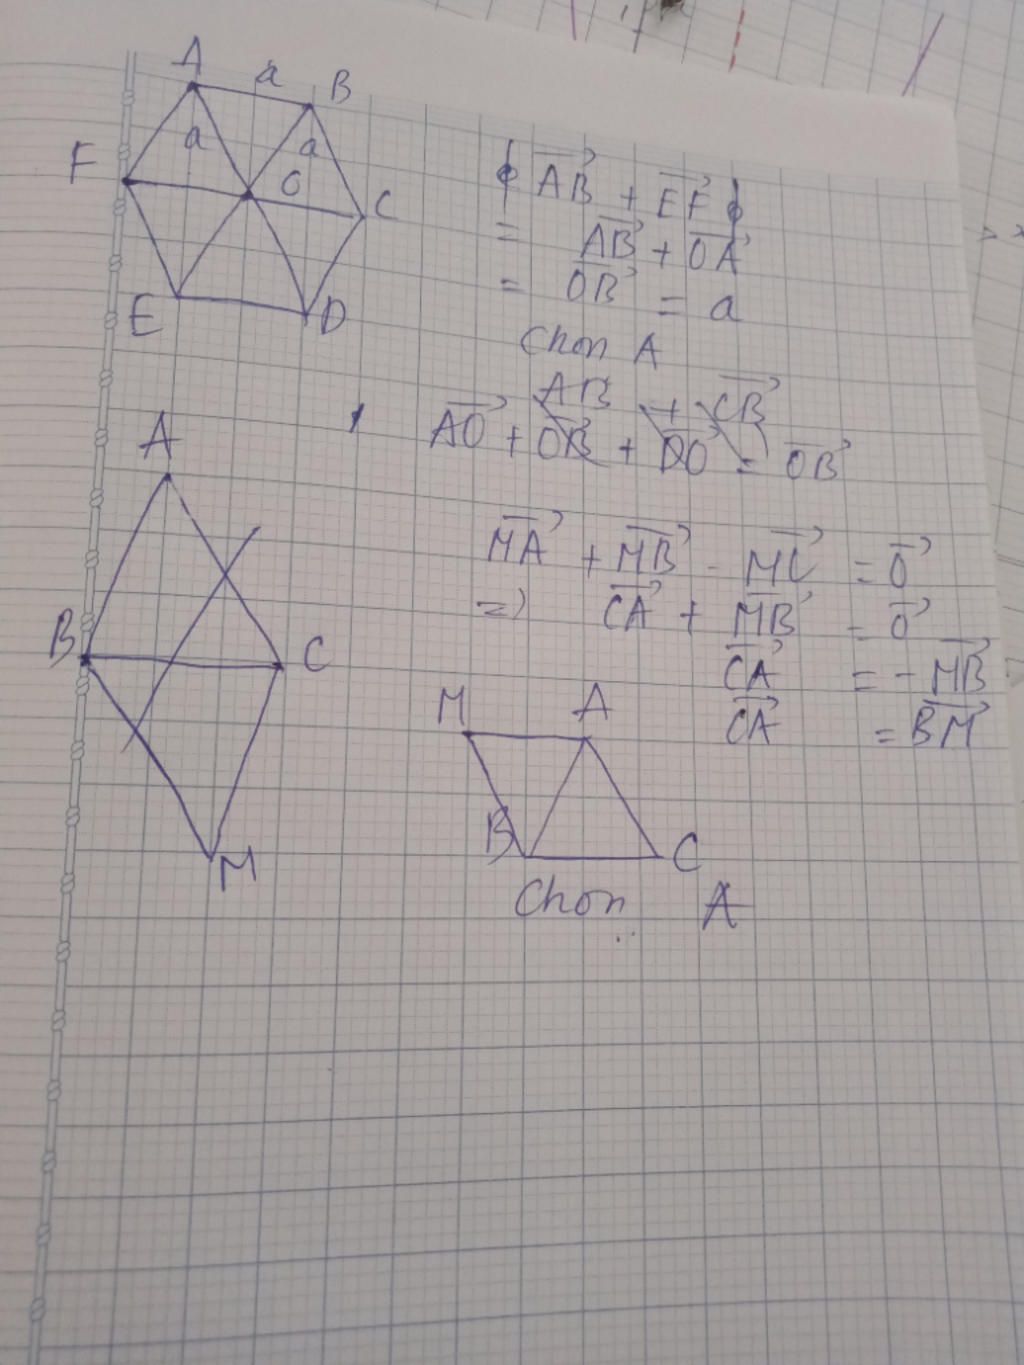 A a B
F a a O C
E D
AB⃗ + EF⃗
= AB⃗ + OA⃗
= OB⃗ = a
Chọn A
AB⃗ + CB⃗
AO⃗ + OB⃗ + DO⃗ = OB⃗
A
B C
M
MA⃗ + MB⃗ - MC⃗ = 0⃗
=) CA⃗ + MB⃗ = 0⃗
CA⃗ = - MB⃗
CA⃗ = BM⃗
M A
B C
Chọn A